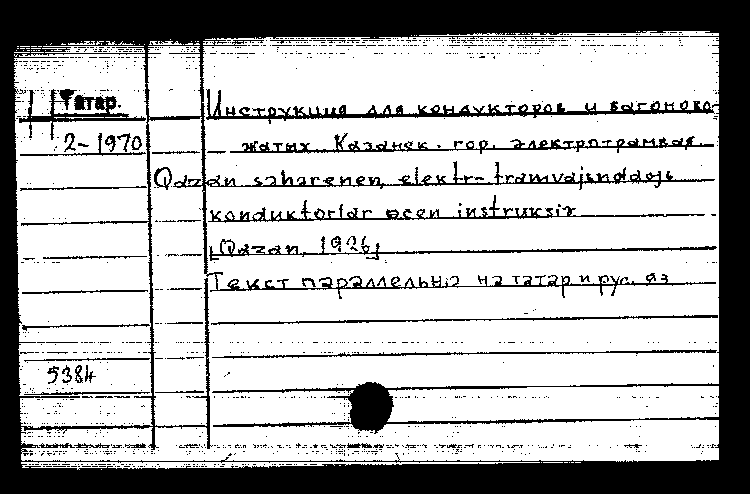 Татар.
2-1970
Инструкция для кондукторов и вагоново-
жатых Казанск. гор. электротрамвая.
Qazan şəhərenen, elektr-tramvajındaƣь
konduktorlar өcen instruksiə
[Qazan, 1926]
Текст параллельно на татар и рус. яз
5384